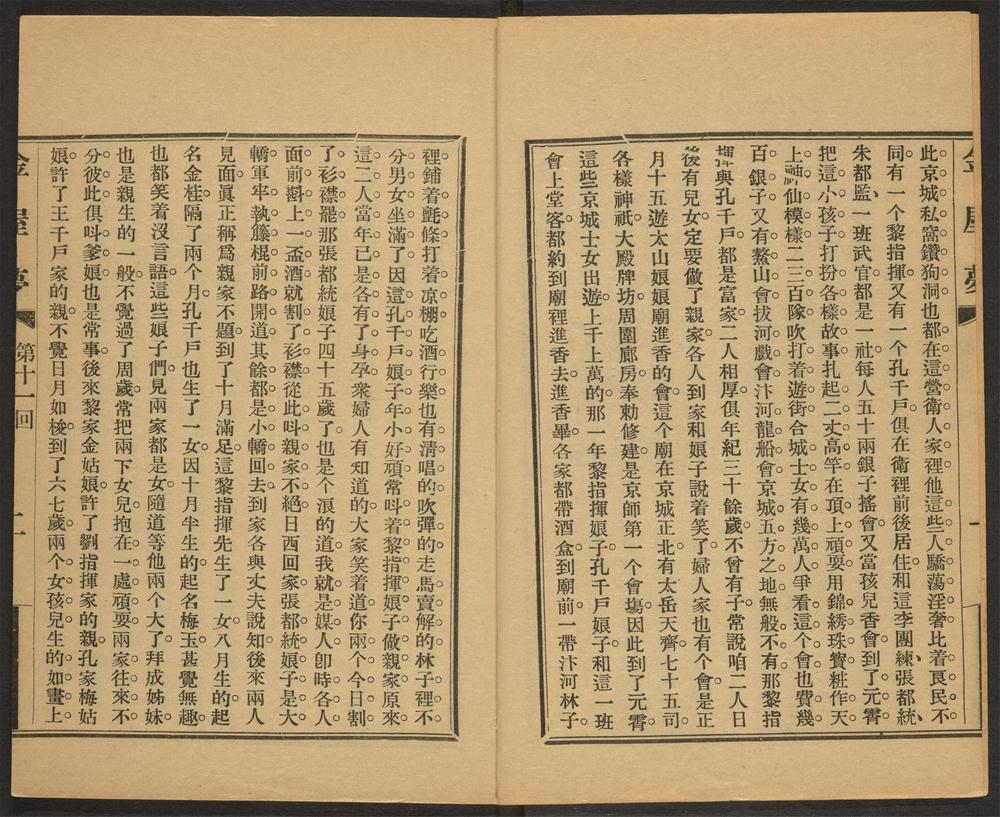 金屋夢
此京城私窩鑽狗洞也都在這營衛人家裡他這些人驕蕩淫奢比着良民不
同有一个黎指揮又有一个孔千戶俱在衛裡前後居住和這李團練張都統
朱都監一班武官都是一社每人五十兩銀子搖會又當孩兒香會到了元霄
把這小孩子打扮各樣故事扎起二丈高竿在頂上頑耍用錦綉珠寶粧作天
上神仙模樣二三百隊吹打着遊街合城士女有幾萬人爭看這个會也費幾
百銀子又有鰲山會拔河戲會汴河龍船會京城五方之地無般不有那黎指
揮與孔千戶都是富家二人相厚俱年紀三十餘歲不曾有子常說咱二人日
後有兒女定要做了親家各人到家和娘子說着笑了婦人家也有个會是正
月十五遊太山娘娘廟進香的會這个廟在京城正北有太岳天齊七十五司
各樣神祇大殿牌坊周圍廊房奉勅修建是京師第一个會塲因此到了元霄
這些京城士女出遊上千上萬的那一年黎指揮娘子孔千戶娘子和這一班
會上堂客都約到廟裡進香去進香畢各家都帶酒盒到廟前一帶汴河林子
裡鋪着氈條打着凉棚吃酒行樂也有淸唱的吹彈的走馬賣解的林子裡不
分男女坐滿了因這孔千戶娘子年小好頑常呌着黎指揮娘子做親家原來
這二人當年已是各有了身孕衆婦人有知道的大家笑着道你兩个今日割
了衫襟罷那張都統娘子四十五歲了也是个浪的道我就是媒人卽時各人
面前斟上一盃酒就割了衫襟從此呌親家不絕日西回家張都統娘子是大
轎軍牢執籐棍前路開道其餘都是小轎回去到家各與丈夫說知後來兩人
見面眞正稱爲親家不題到了十月滿足這黎指揮先生了一女八月生的起
名金桂隔了兩个月孔千戶也生了一女因十月半生的起名梅玉甚覺無趣
也都笑着沒言語這些娘子們見兩家都是女隨道等他兩个大了拜成姊妹
也是親生的一般不覺過了周歲常把兩下女兒抱在一處頑耍兩家往來不
分彼此俱呌爹娘也是常事後來黎家金姑娘許了劉指揮家的親孔家梅姑
娘許了王千戶家的親不覺日月如梭到了六七歲兩个女孩兒生的如畫上
金屋夢 第十一回 二